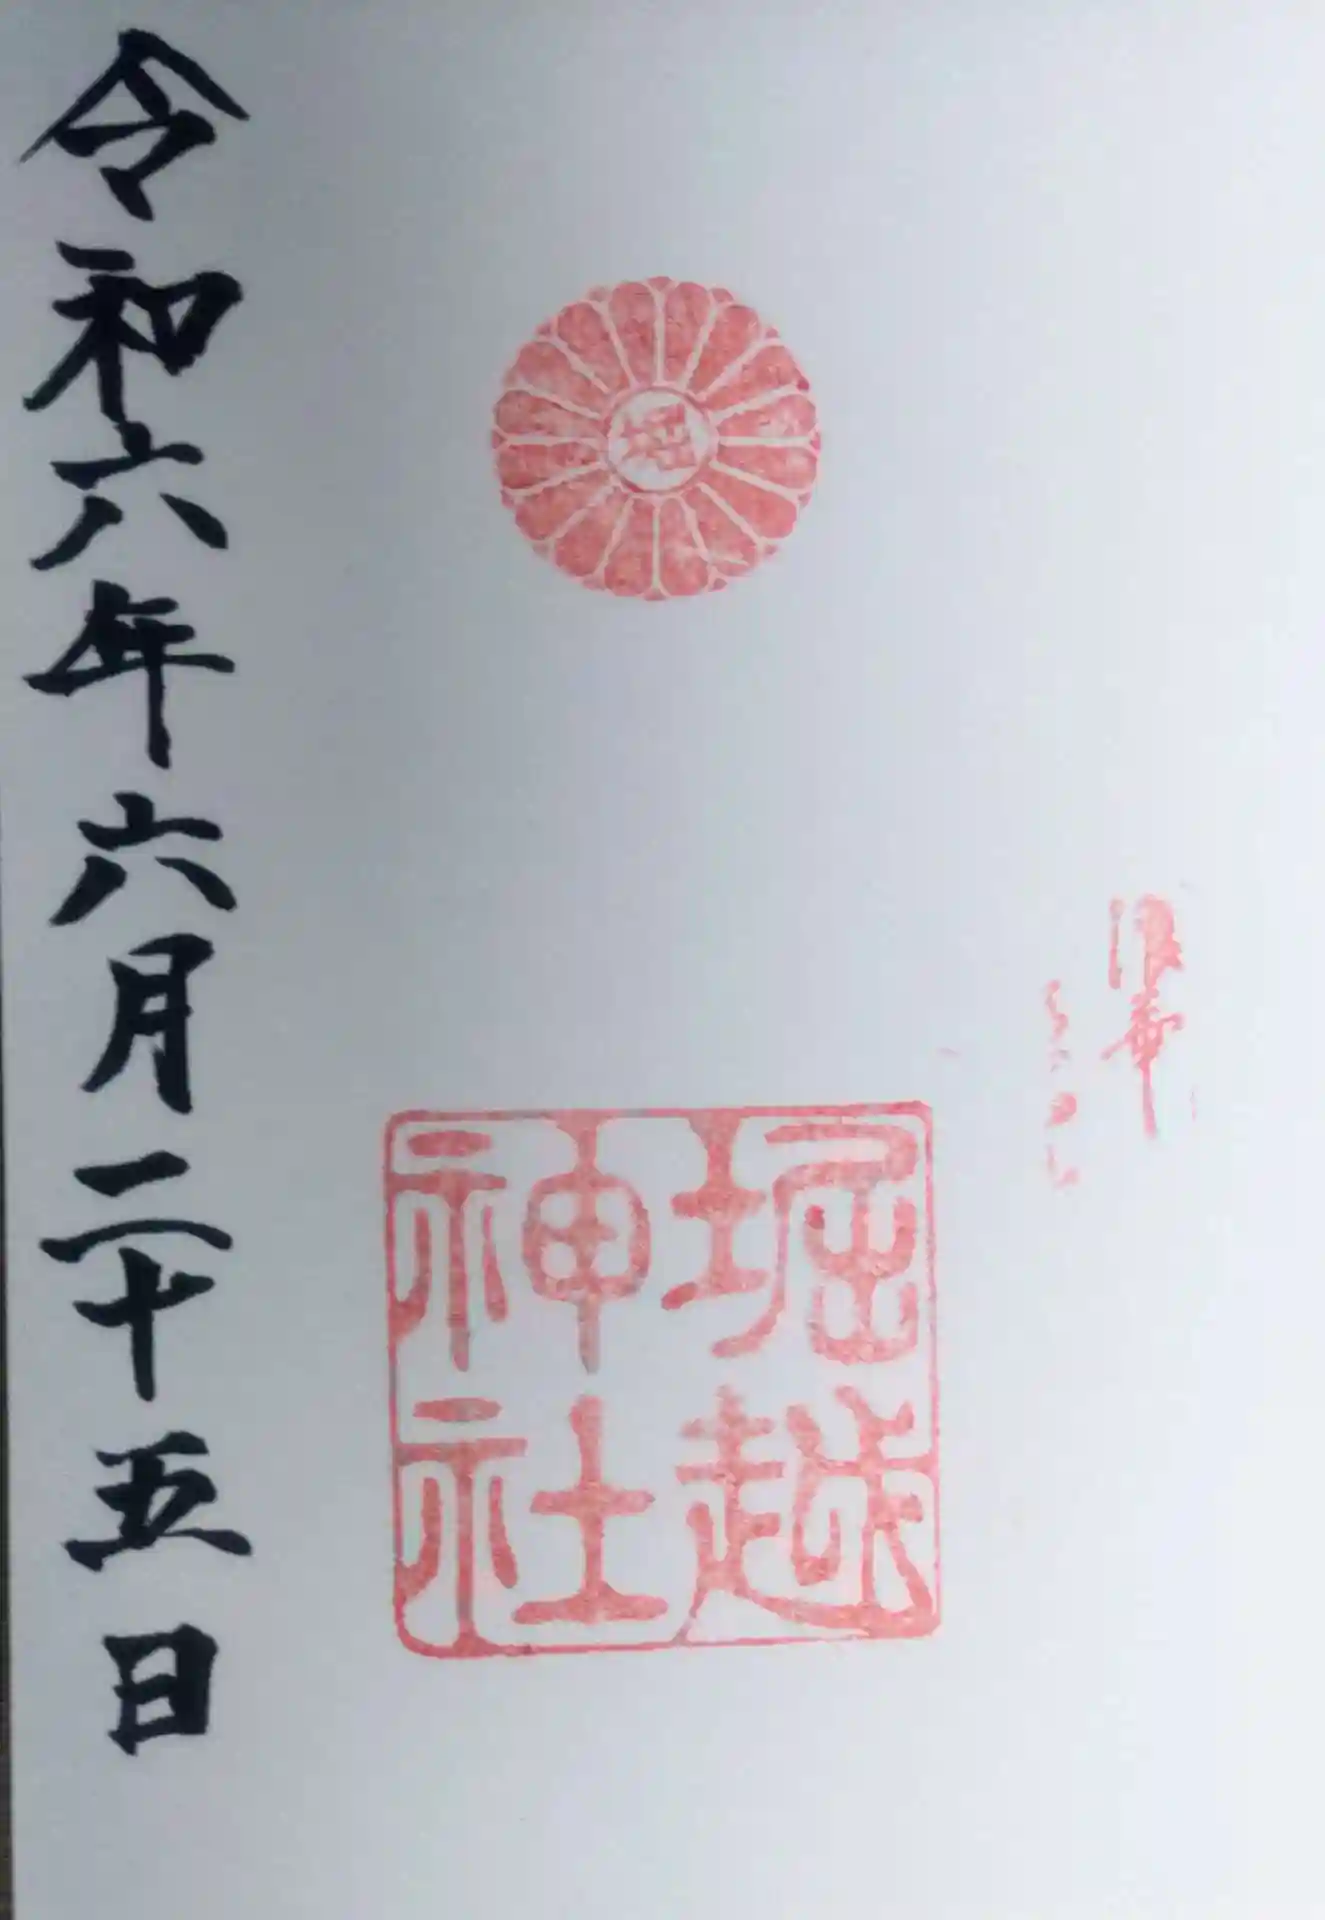 浪華
堀
堀越
神社
令和六年六月二十五日